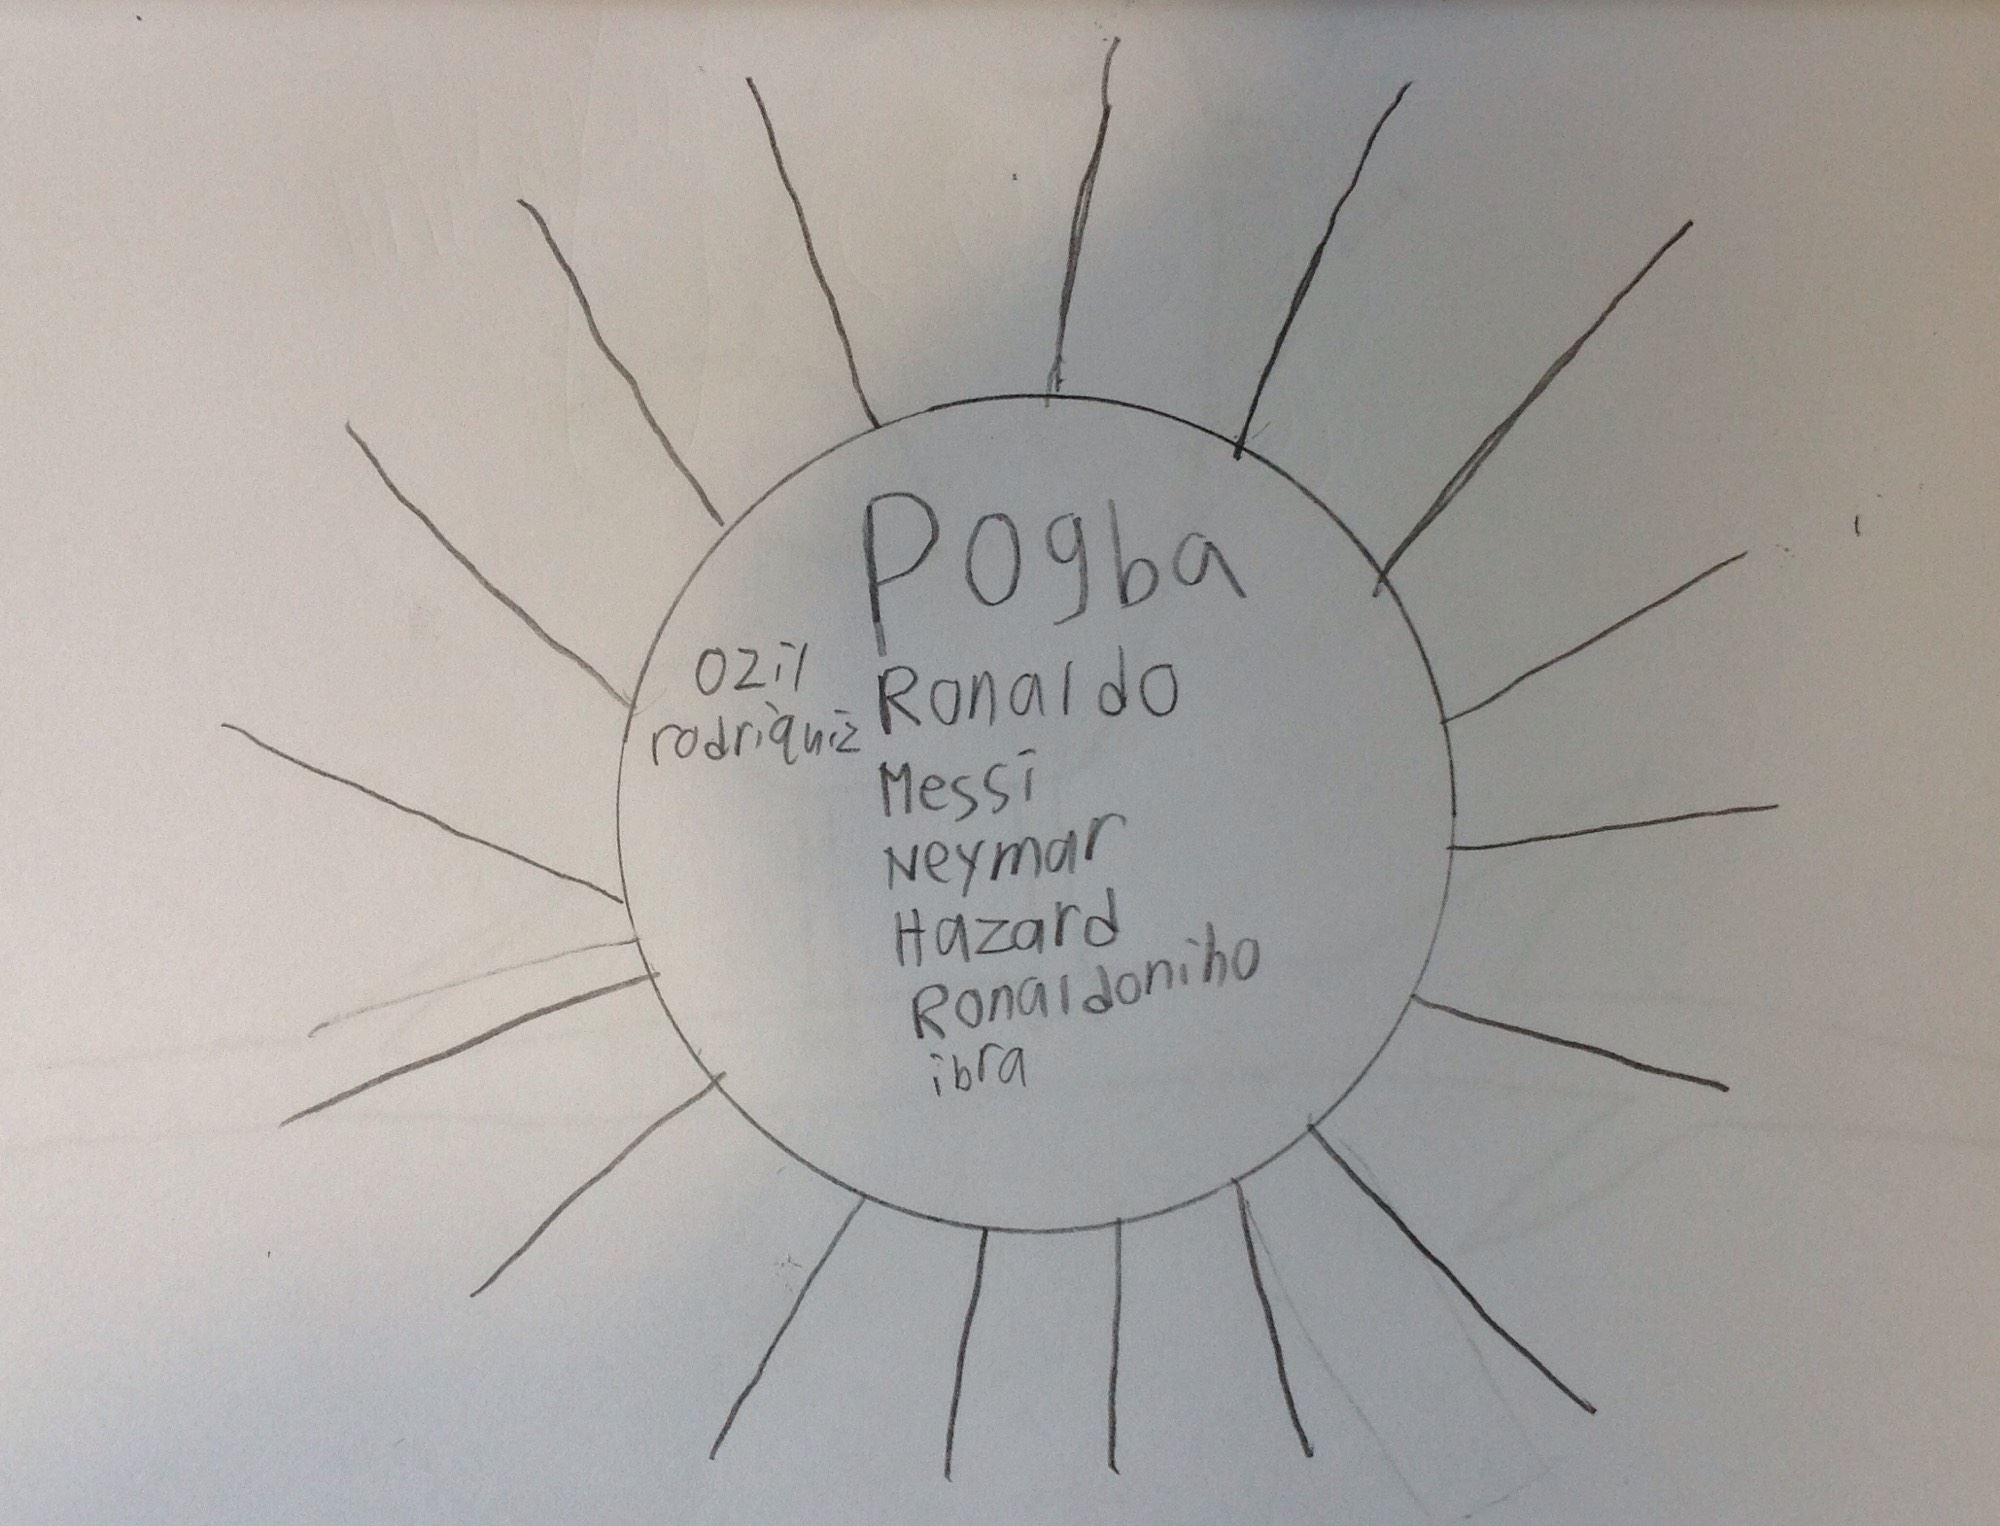 Pogba
Ozil
rodriquiz
Ronaldo
Messi
Neymar
Hazard
Ronaldoniho
ibra